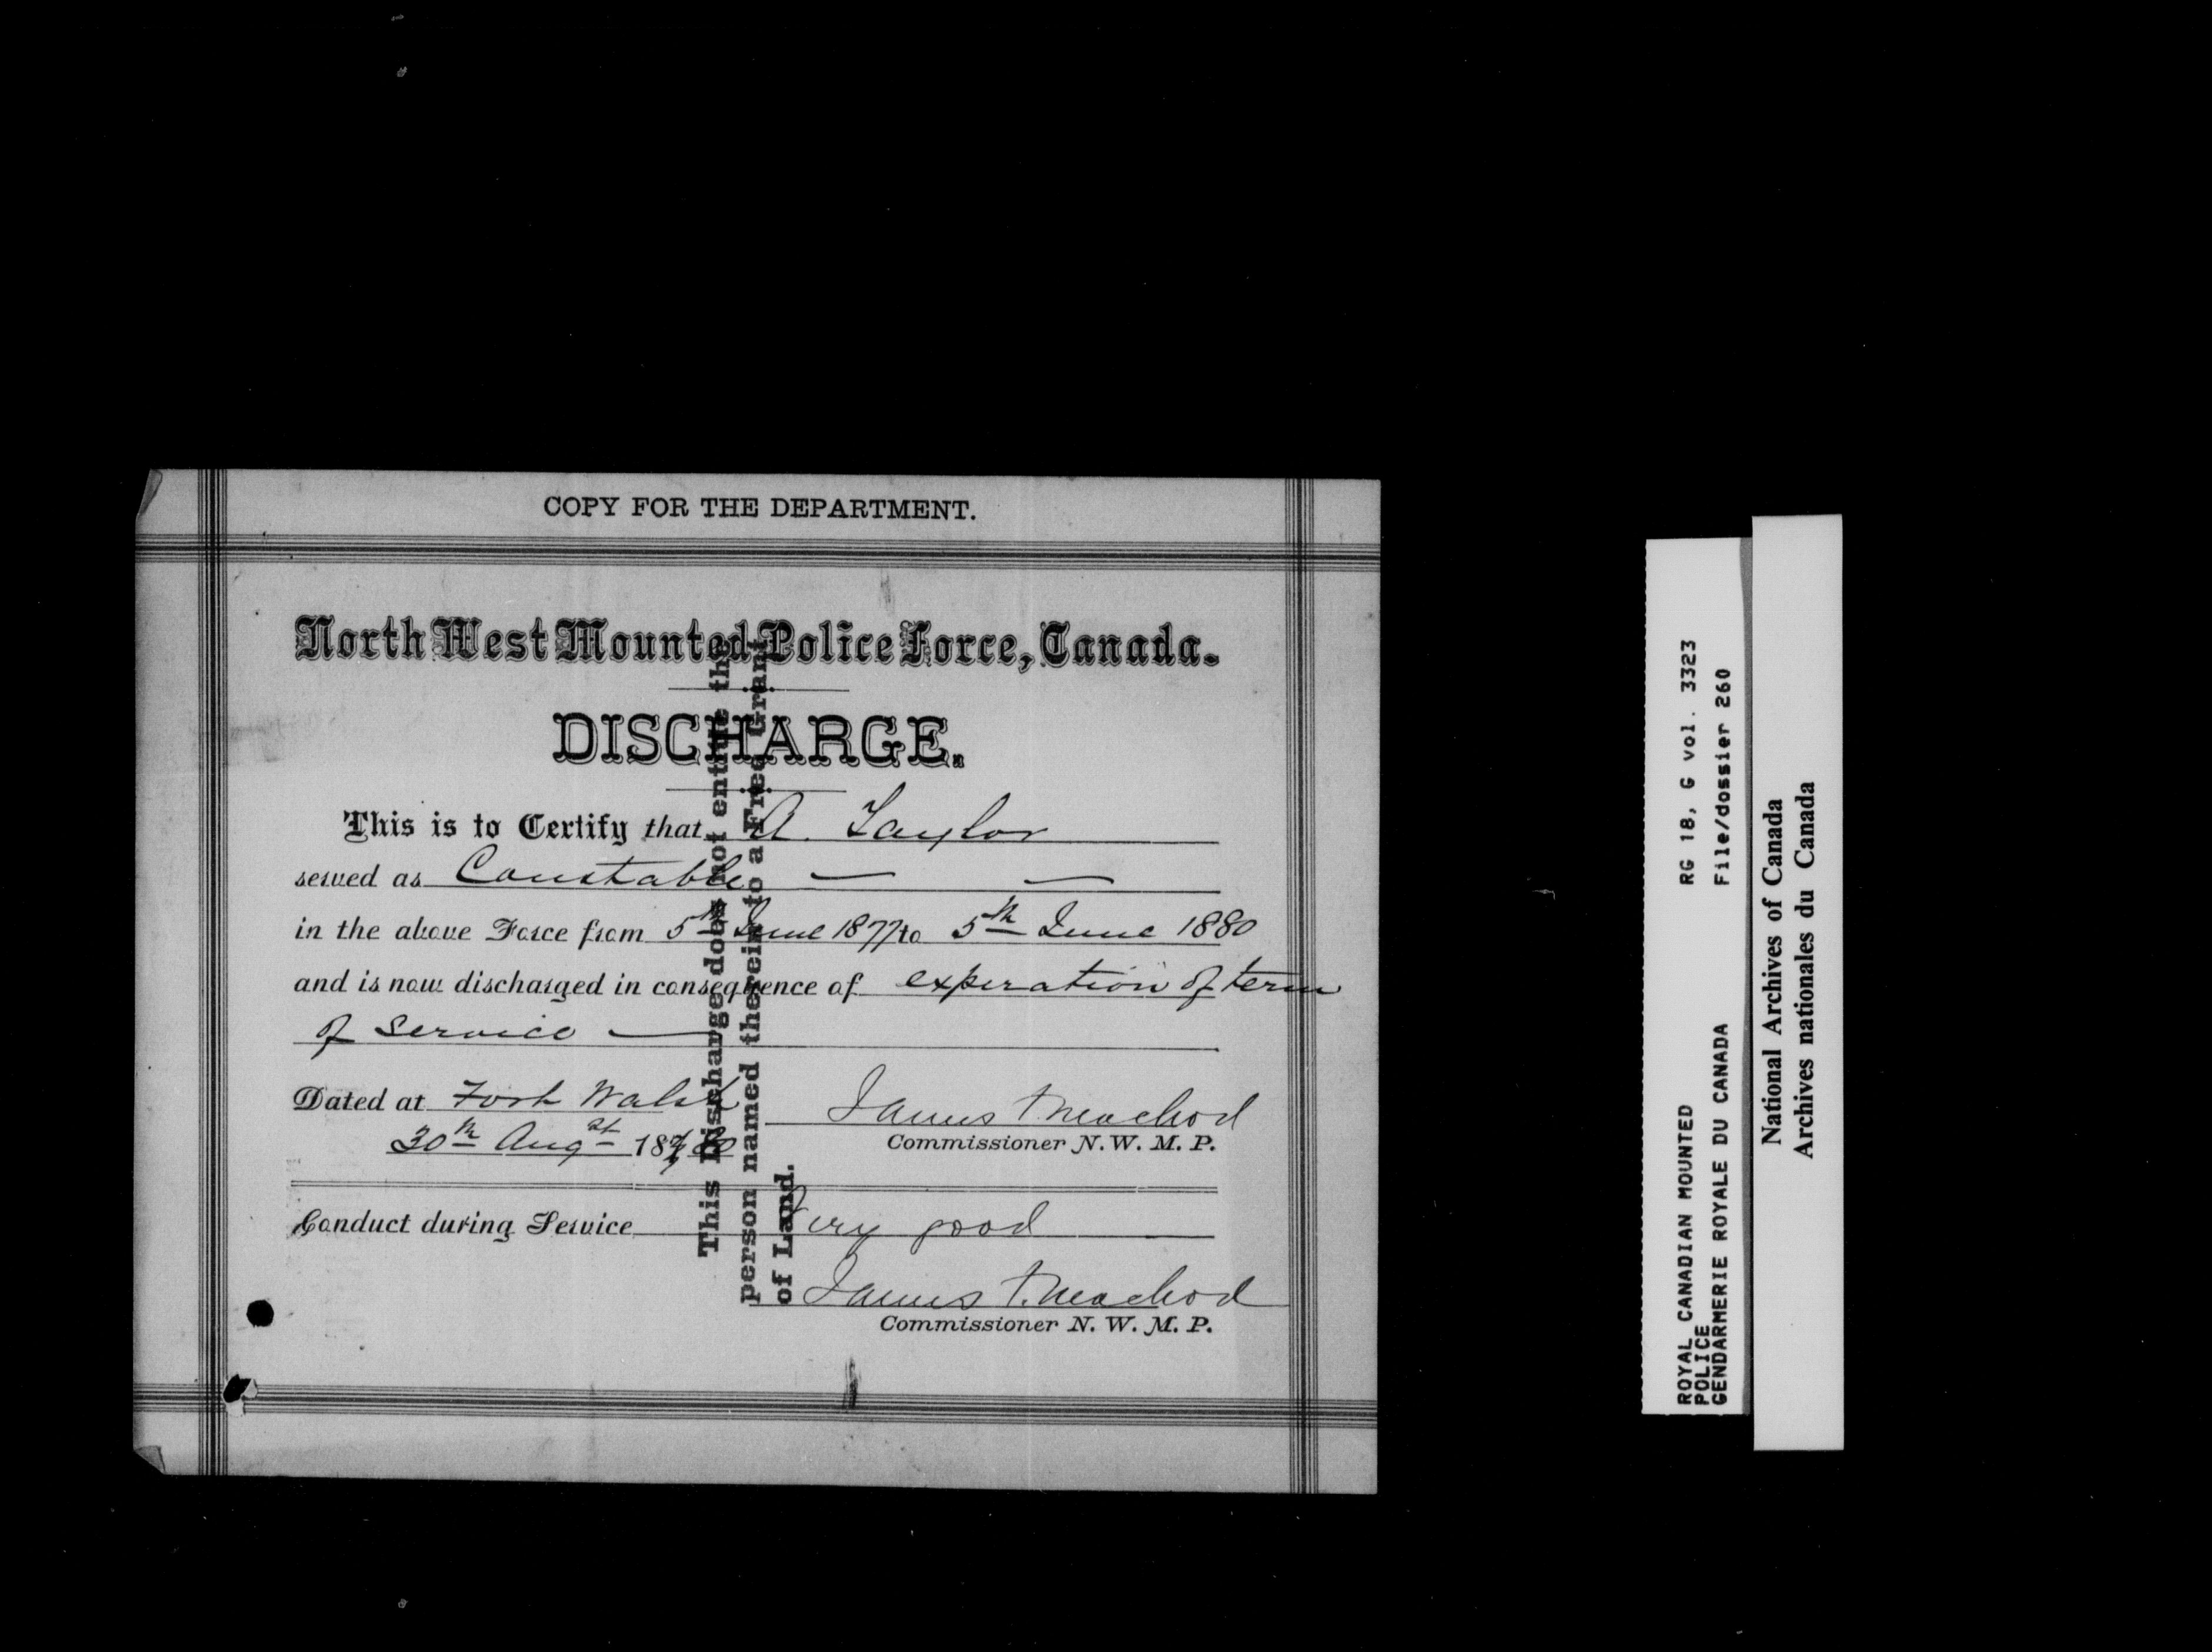 COPY FOR THE DEPARTMENT.
North West Mounted Police Force, Canada.
DISCHARGE.
This is to Certify that A. Taylor
served as Constable
in the above Force from 5th June 1877 to 5th June 1880
and is now discharged in consequence of experation of term
of service
Dated at Fort Walsh
30th Augst 1880
James F. Macleod
Commissioner N. W. M. P.
Conduct during Service Very good
James F. Macleod
Commissioner N. W. M. P.
This Discharge does not entitle the
person named therein to a Free Grant
of Land.
ROYAL CANADIAN MOUNTED RG 18, G vol. 3323
POLICE
GENDARMERIE ROYALE DU CANADA File/dossier 260
National Archives of Canada
Archives nationales du Canada